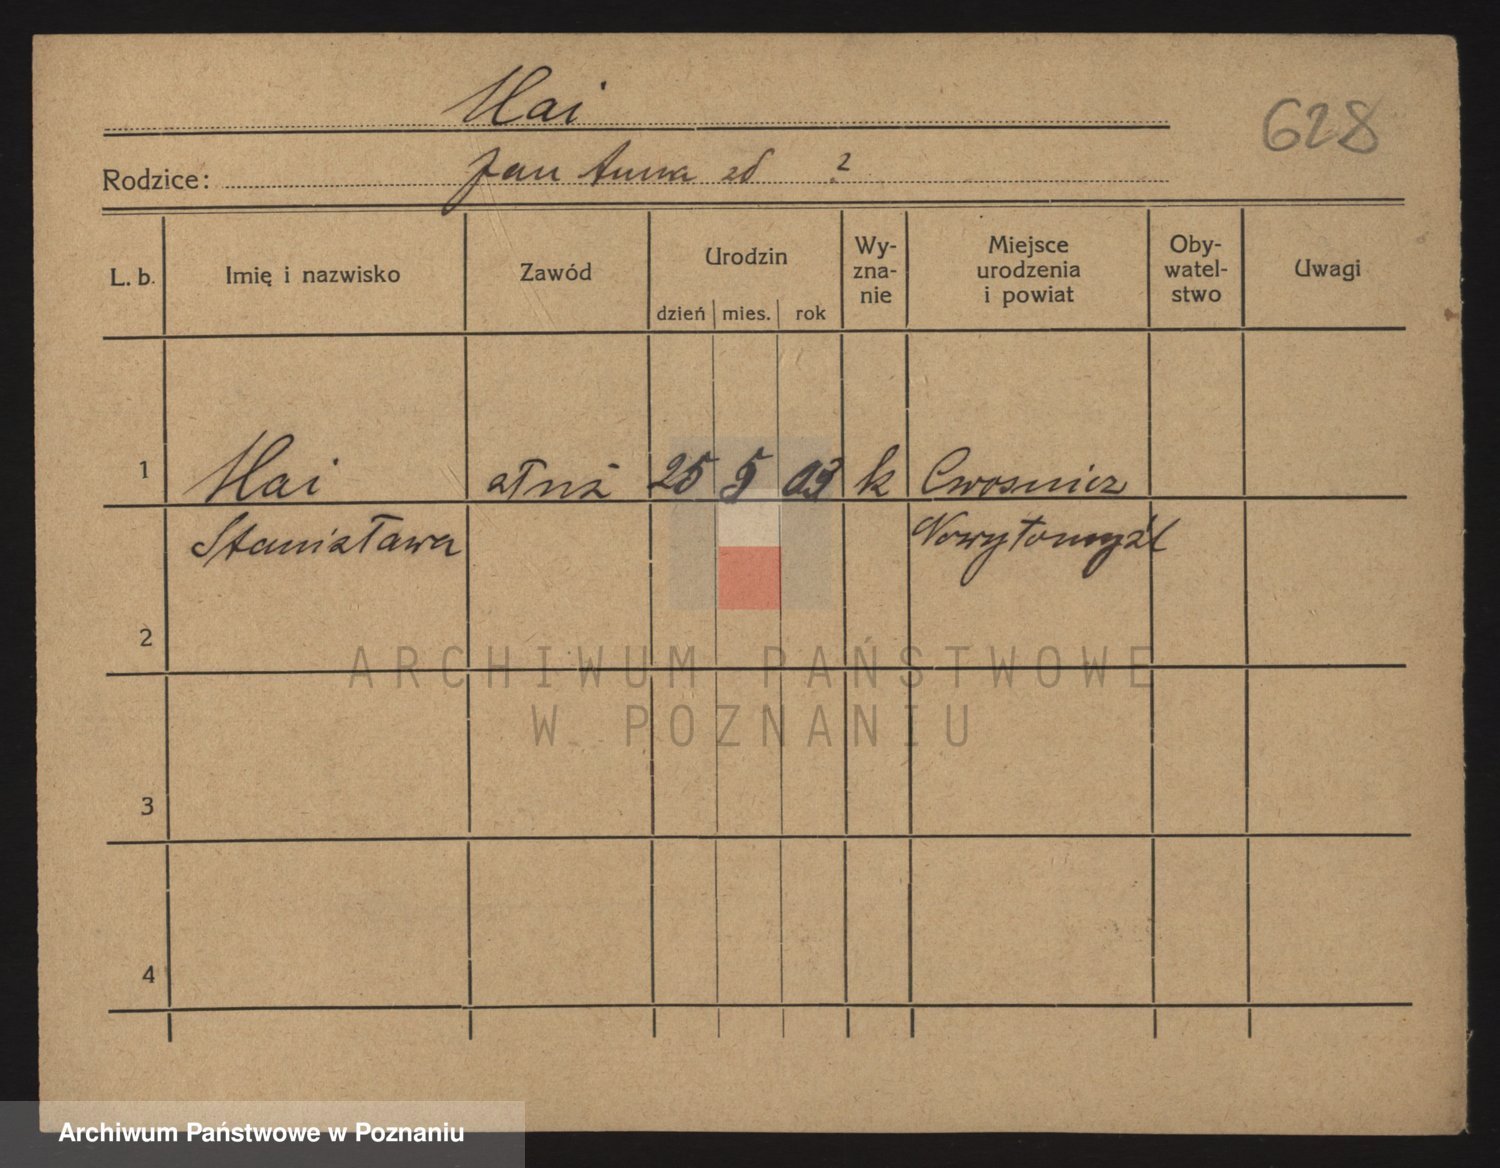 Hai
628
Rodzice: Jan Anna zd ?
L. b. Imię i nazwisko Zawód Urodzin Wy- zna- nie Miejsce urodzenia i powiat Oby- watel- stwo Uwagi
dzień mies. rok
1 Hai służ 25 5 03 k
Stanisława Nowytomyśl
2
ARCHIWUM PAŃSTWOWE
W POZNANIU
3
4
Archiwum Państwowe w Poznaniu